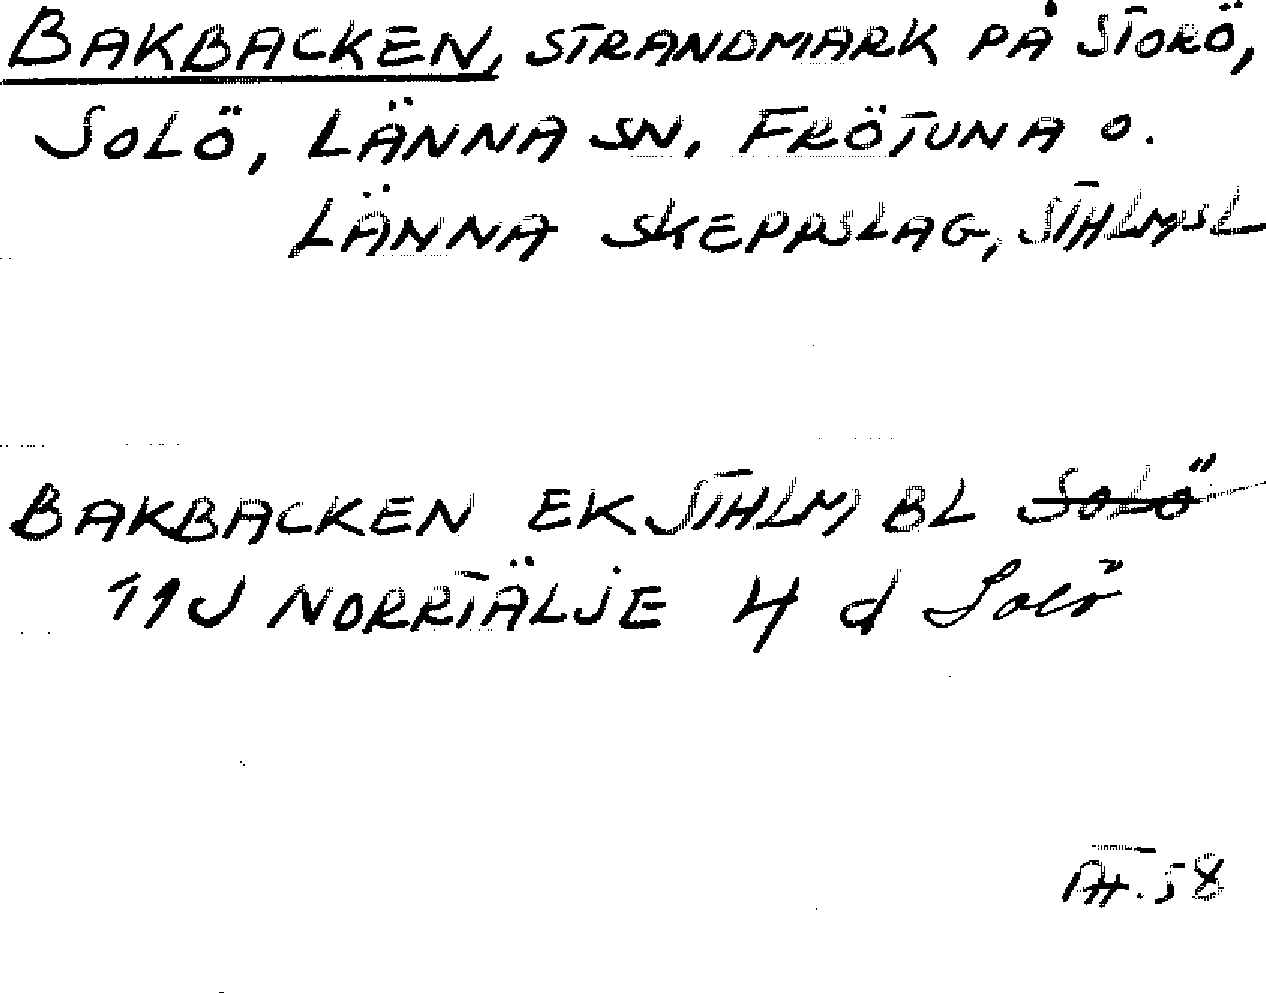 BAKBACKEN, STRANDMARK PÅ STORÖ,
SOLÖ, LÄNNA SN, FRÖTUNA O.
LÄNNA SKEPPSLAG, STHLMSL
BAKBACKEN EK STHLM BL SOLÖ
11J NORRTÄLJE 4 d Solö
58